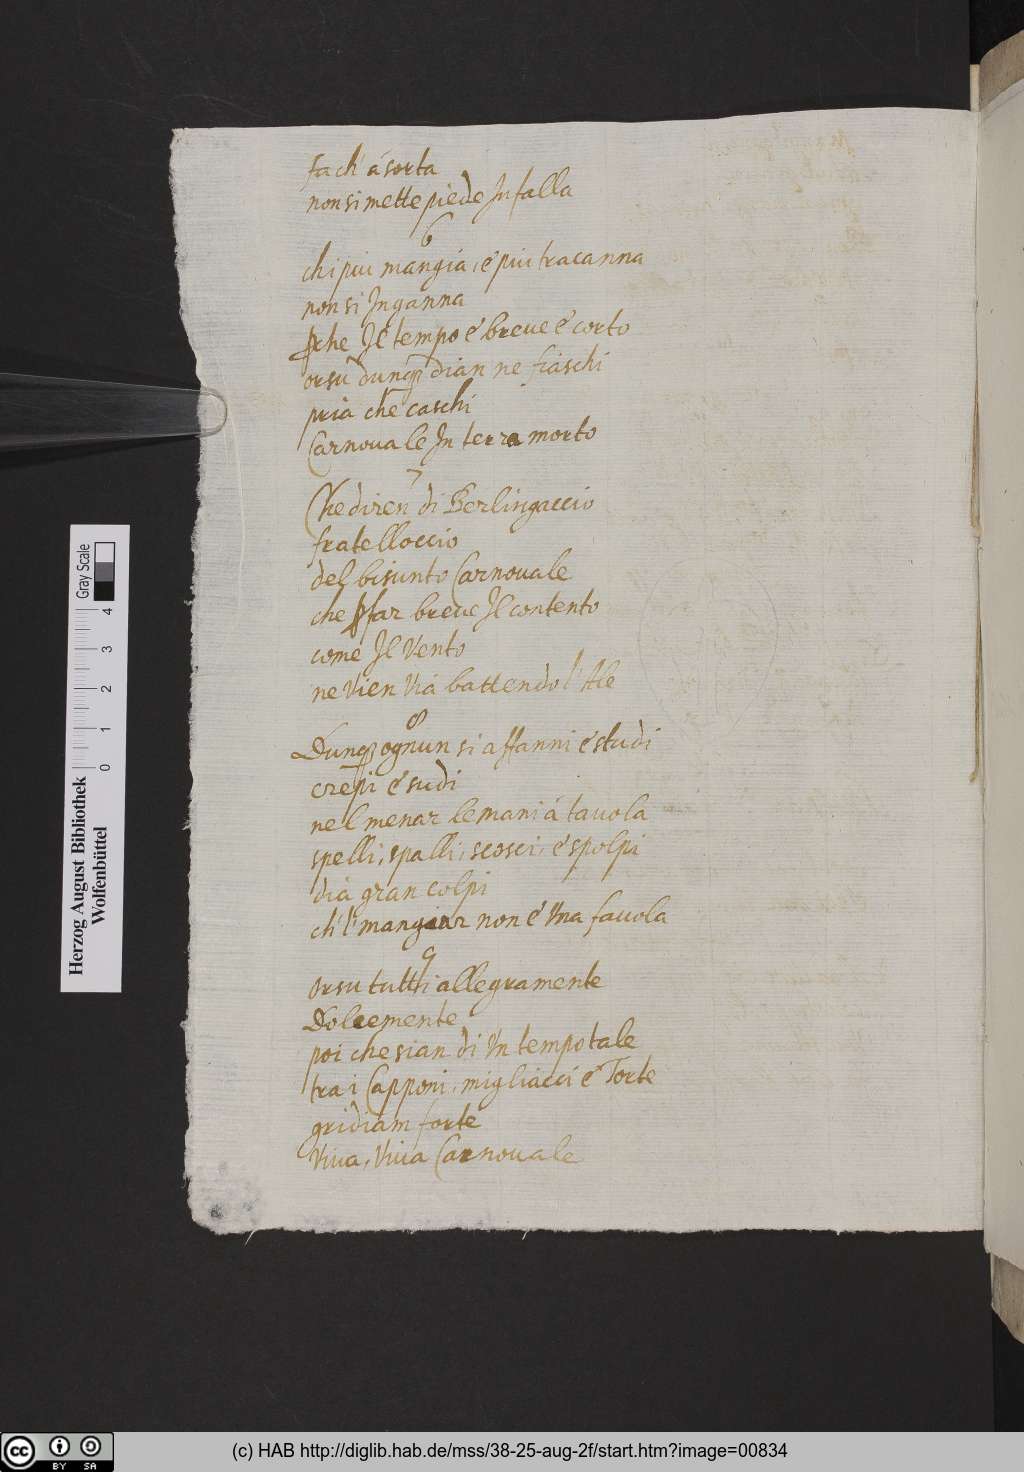 fa ch' á sorta
non si mette piede In falla
6
chi piu mangia, é piu tracanna
non si Inganna
ꝑche Il tempo é breue é corto
orsu dunqȝ dian ne fiaschi
pria che caschi
Carnouale In terra morto
7
Che diren di Berlingaccio
fratelloccio
del bisunto Carnouale
che ꝑ far breue Il contento
come Il Vento
ne Vien Viá battendo l'Ale
8
Dunqȝ ognun si affanni é studi
crepi é sudi
nel menar le mani á tauola
spelli, spalli, scosci, é spolpi
dia gran colpi
ch'l mangiar non é Vna fauola
9
orsu tutti allegramente
Dolcemente
poi che sian di Vn tempo tale
tra i Capponi, migliacci é Torte
gridiam forte
Viua, Viua Carnouale
Herzog August Bibliothek
Wolfenbüttel
Gray Scale
0 1 2 3 4
cc BY SA
(c) HAB http://diglib.hab.de/mss/38-25-aug-2f/start.htm?image=00834